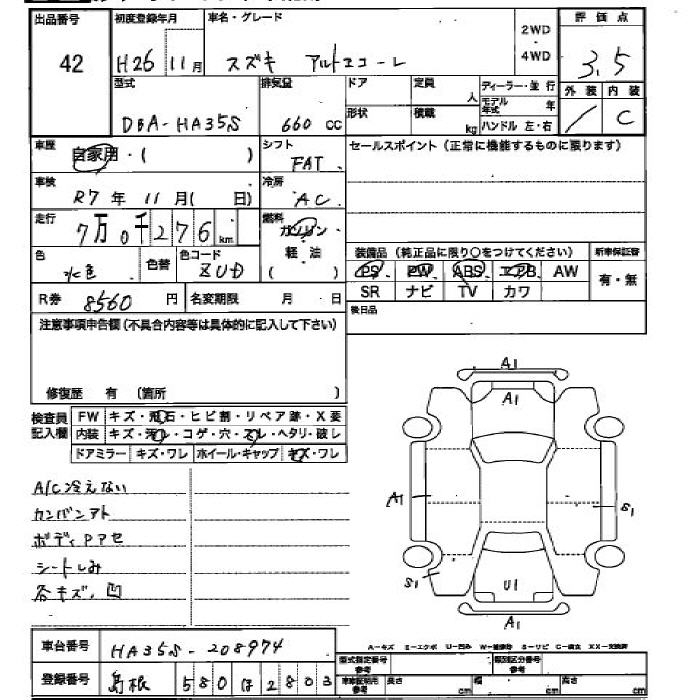 出品番号 初度登録年月 車名・グレード 2WD 4WD 評価点
42 H26 11月 スズキ アルトエコーレ 3.5
外装 内装
/ C
型式 排気量 ドア 定員 人 ディーラー・並行
DBA-HA35S 660 cc 形状 積載 kg モデル年式 年
ハンドル 左・右
車歴 自家用・( ) シフト FAT セールスポイント(正常に機能するものに限ります)
車検 R7年 11月( 日) 冷房 AC
走行 7万0千276km 燃料 ガソリン
軽油
( )
色 水色 色替 色コード ZUD
装備品(純正品に限り○をつけてください) 新車保証書
PS PW ABS エアB AW 有・無
SR ナビ TV カワ
R券 8560円 名変期限 月 日
後日品
注意事項申告欄(不具合内容等は具体的に記入して下さい)
修復歴 有 (箇所 )
検査員記入欄
FW キズ・飛石・ヒビ割・リペア跡・X要
内装 キズ・汚レ・コゲ・穴・スレ・ヘタリ・破レ
ドアミラー キズ・ワレ ホイール・キャップ キズ・ワレ
A/C冷えない
カンバンアト
ボディPアセ
シートしみ
各キズ、凹
A1
A1
A1
S1
S1
U1
A1
A-キズ E-エクボ U-凹み W-補修跡 S-サビ C-腐食 XX-交換済
車台番号 HA35S-208974
登録番号 島根 580 ほ 2803
型式指定番号 参考 類別区分番号 参考
車検証明用 参考 長さ cm 幅 cm 高さ cm